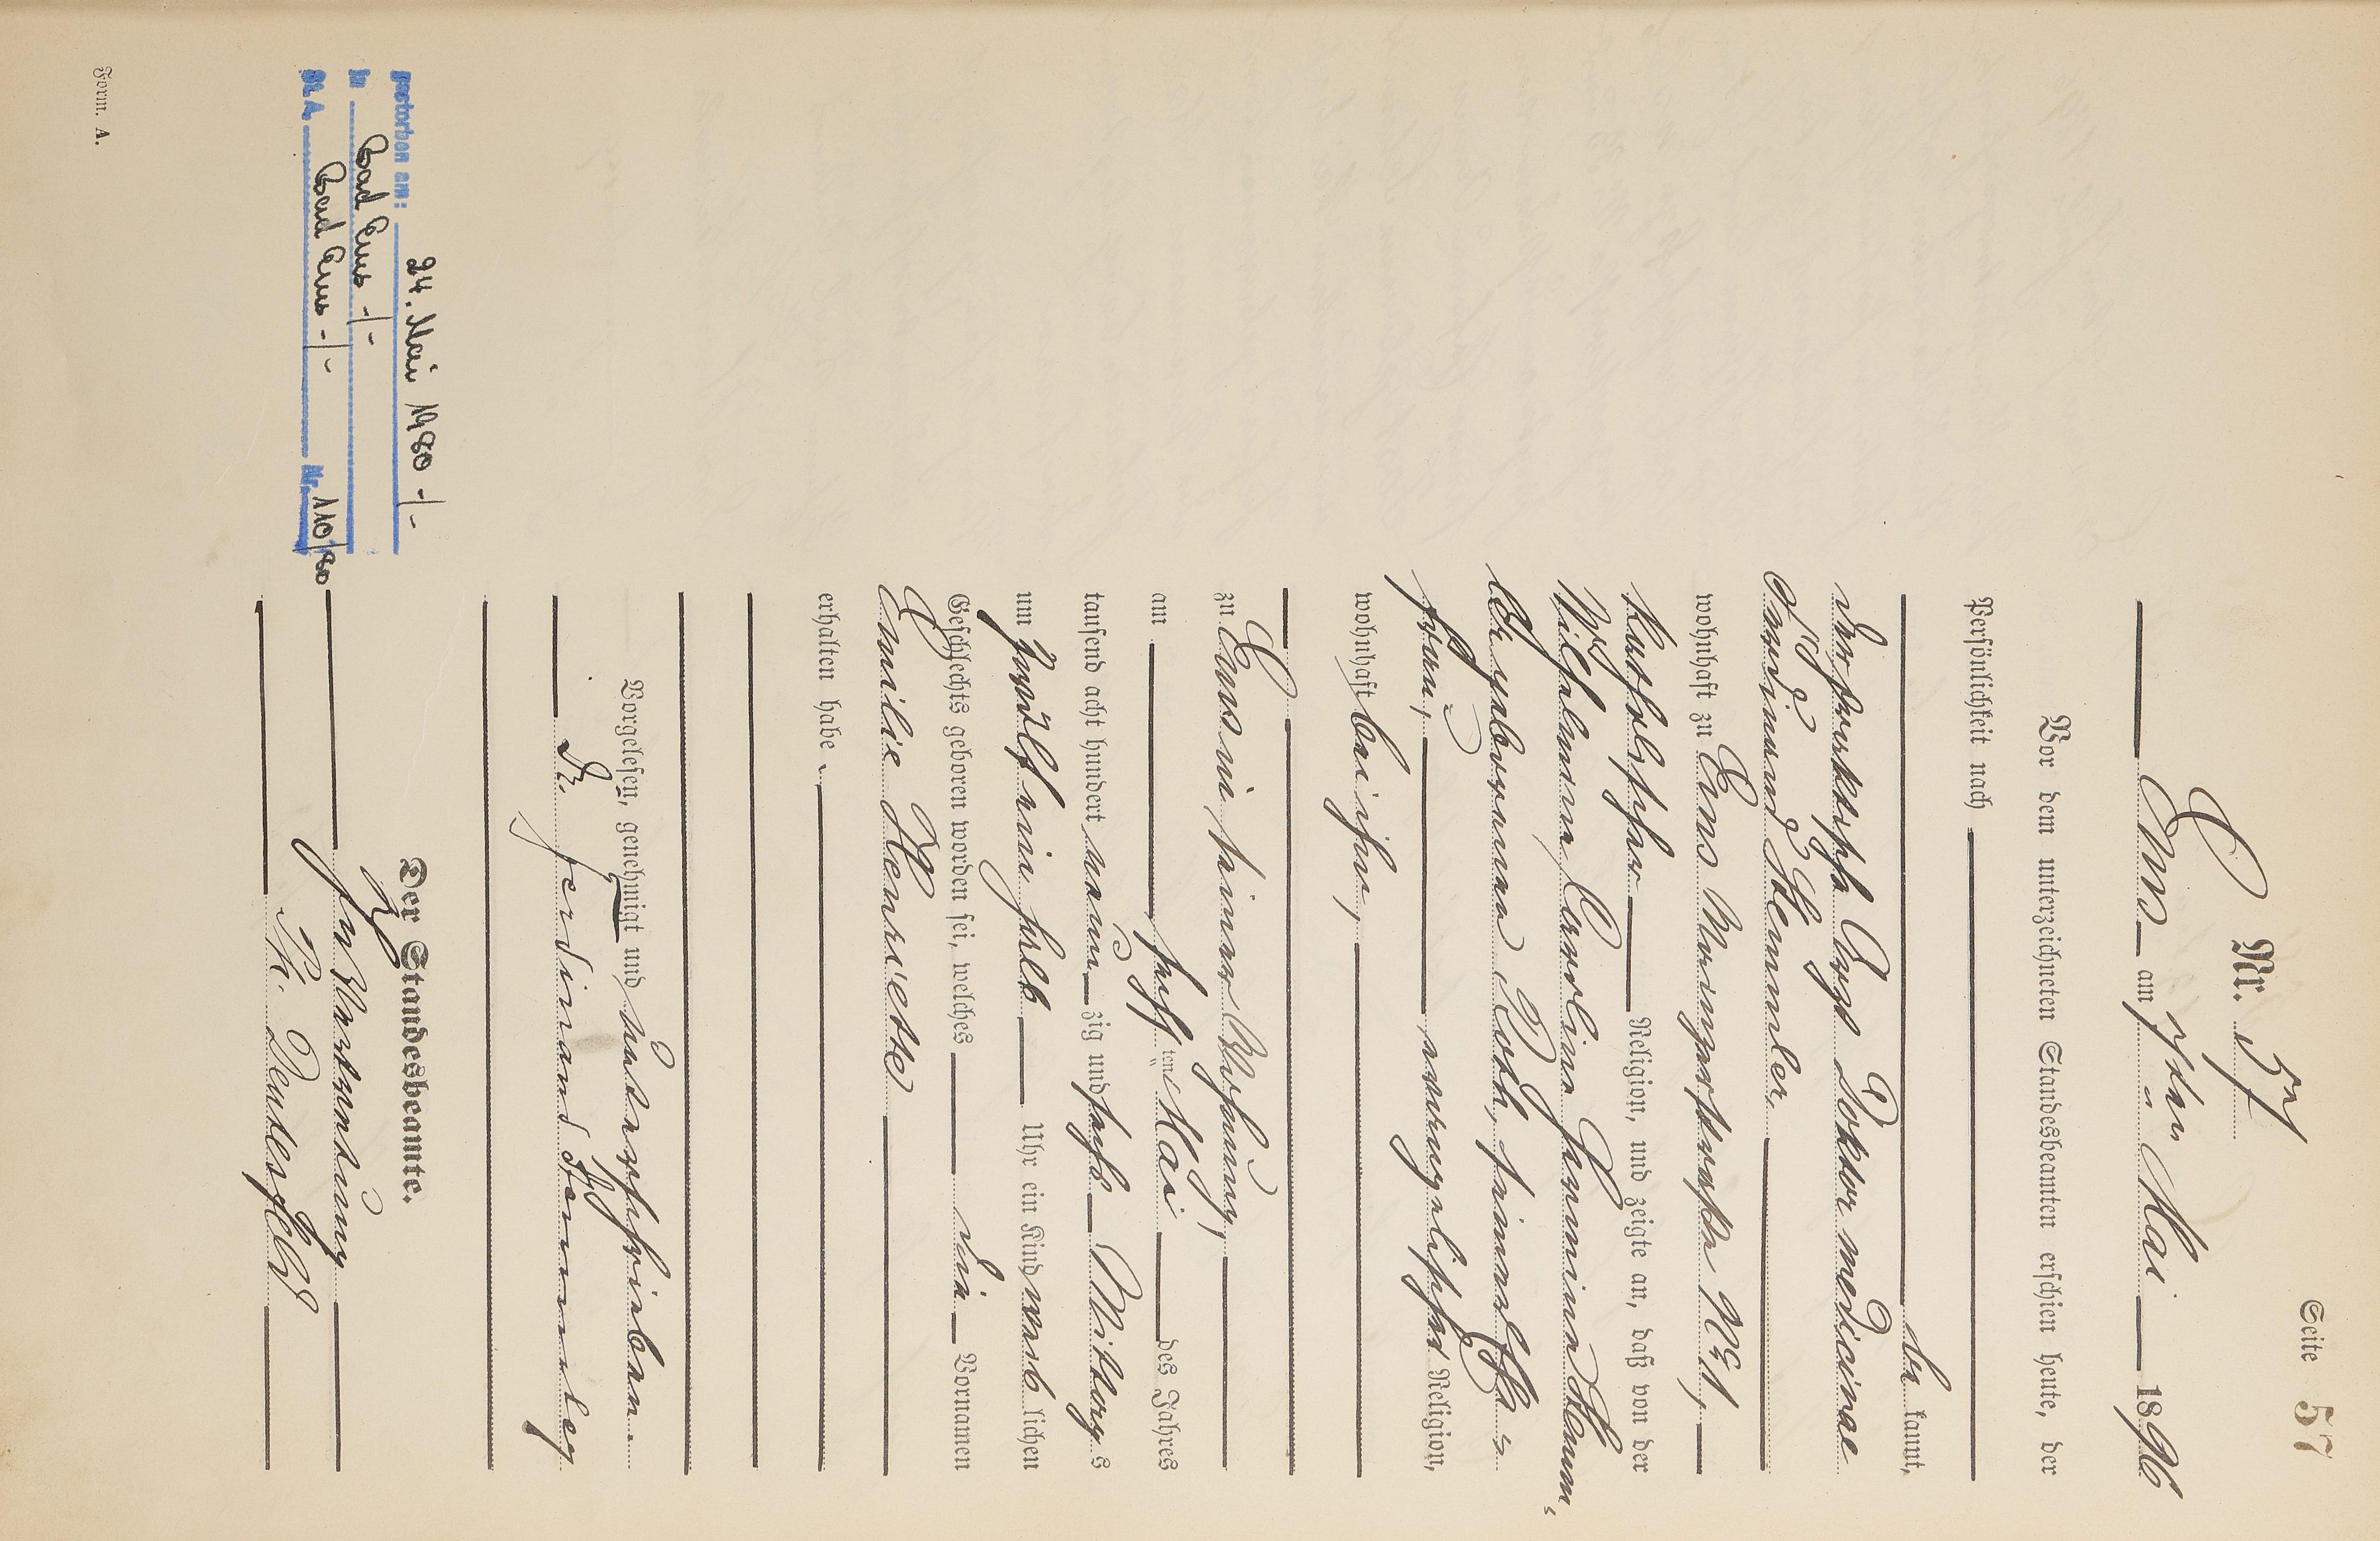 Seite 57
Nr. 57
Ems am 8ten Mai 1896
Vor dem unterzeichneten Standesbeamten erschien heute, der
Persönlichkeit nach
be kannt,
der praktische Arzt Doktor medicinae
Ferdinand Stemmler,
wohnhaft zu Ems
katholischer Religion, und zeigte an, daß von der
Wilhelmine Caroline Hermine Stemm„
ler geborenen Roth, seiner Ehe„
frau, evangelischer Religion,
wohnhaft bei ihm,
zu Ems in seiner Wohnung,
am sechs ten Mai des Jahres
tausend acht hundert neun zig und sechs Mittags
um zwölf ein halb Uhr ein Kind weib lichen
Geschlechts geboren worden sei, welches die Vornamen
Emilie Henriette
erhalten habe.
Vorgelesen, genehmigt und unterschrieben.
Dr. Ferdinand Stemmler
Der Standesbeamte.
In Vertretung
Th.
gestorben am: 24. Mai 1980 -/-
in Bad Ems -/-
St. A. Bad Ems -/- Nr. 110/80
Form. A.